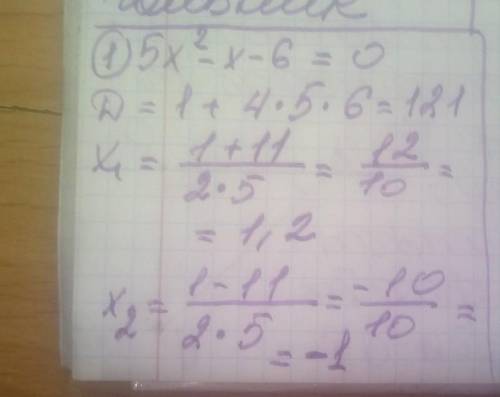 ① 5x² - x - 6 = 0
D = 1 + 4·5·6 = 121
x₁ = (1 + 11)/(2·5) = 12/10 =
= 1,2
x₂ = (1 - 11)/(2·5) = -10/10 =
= -1